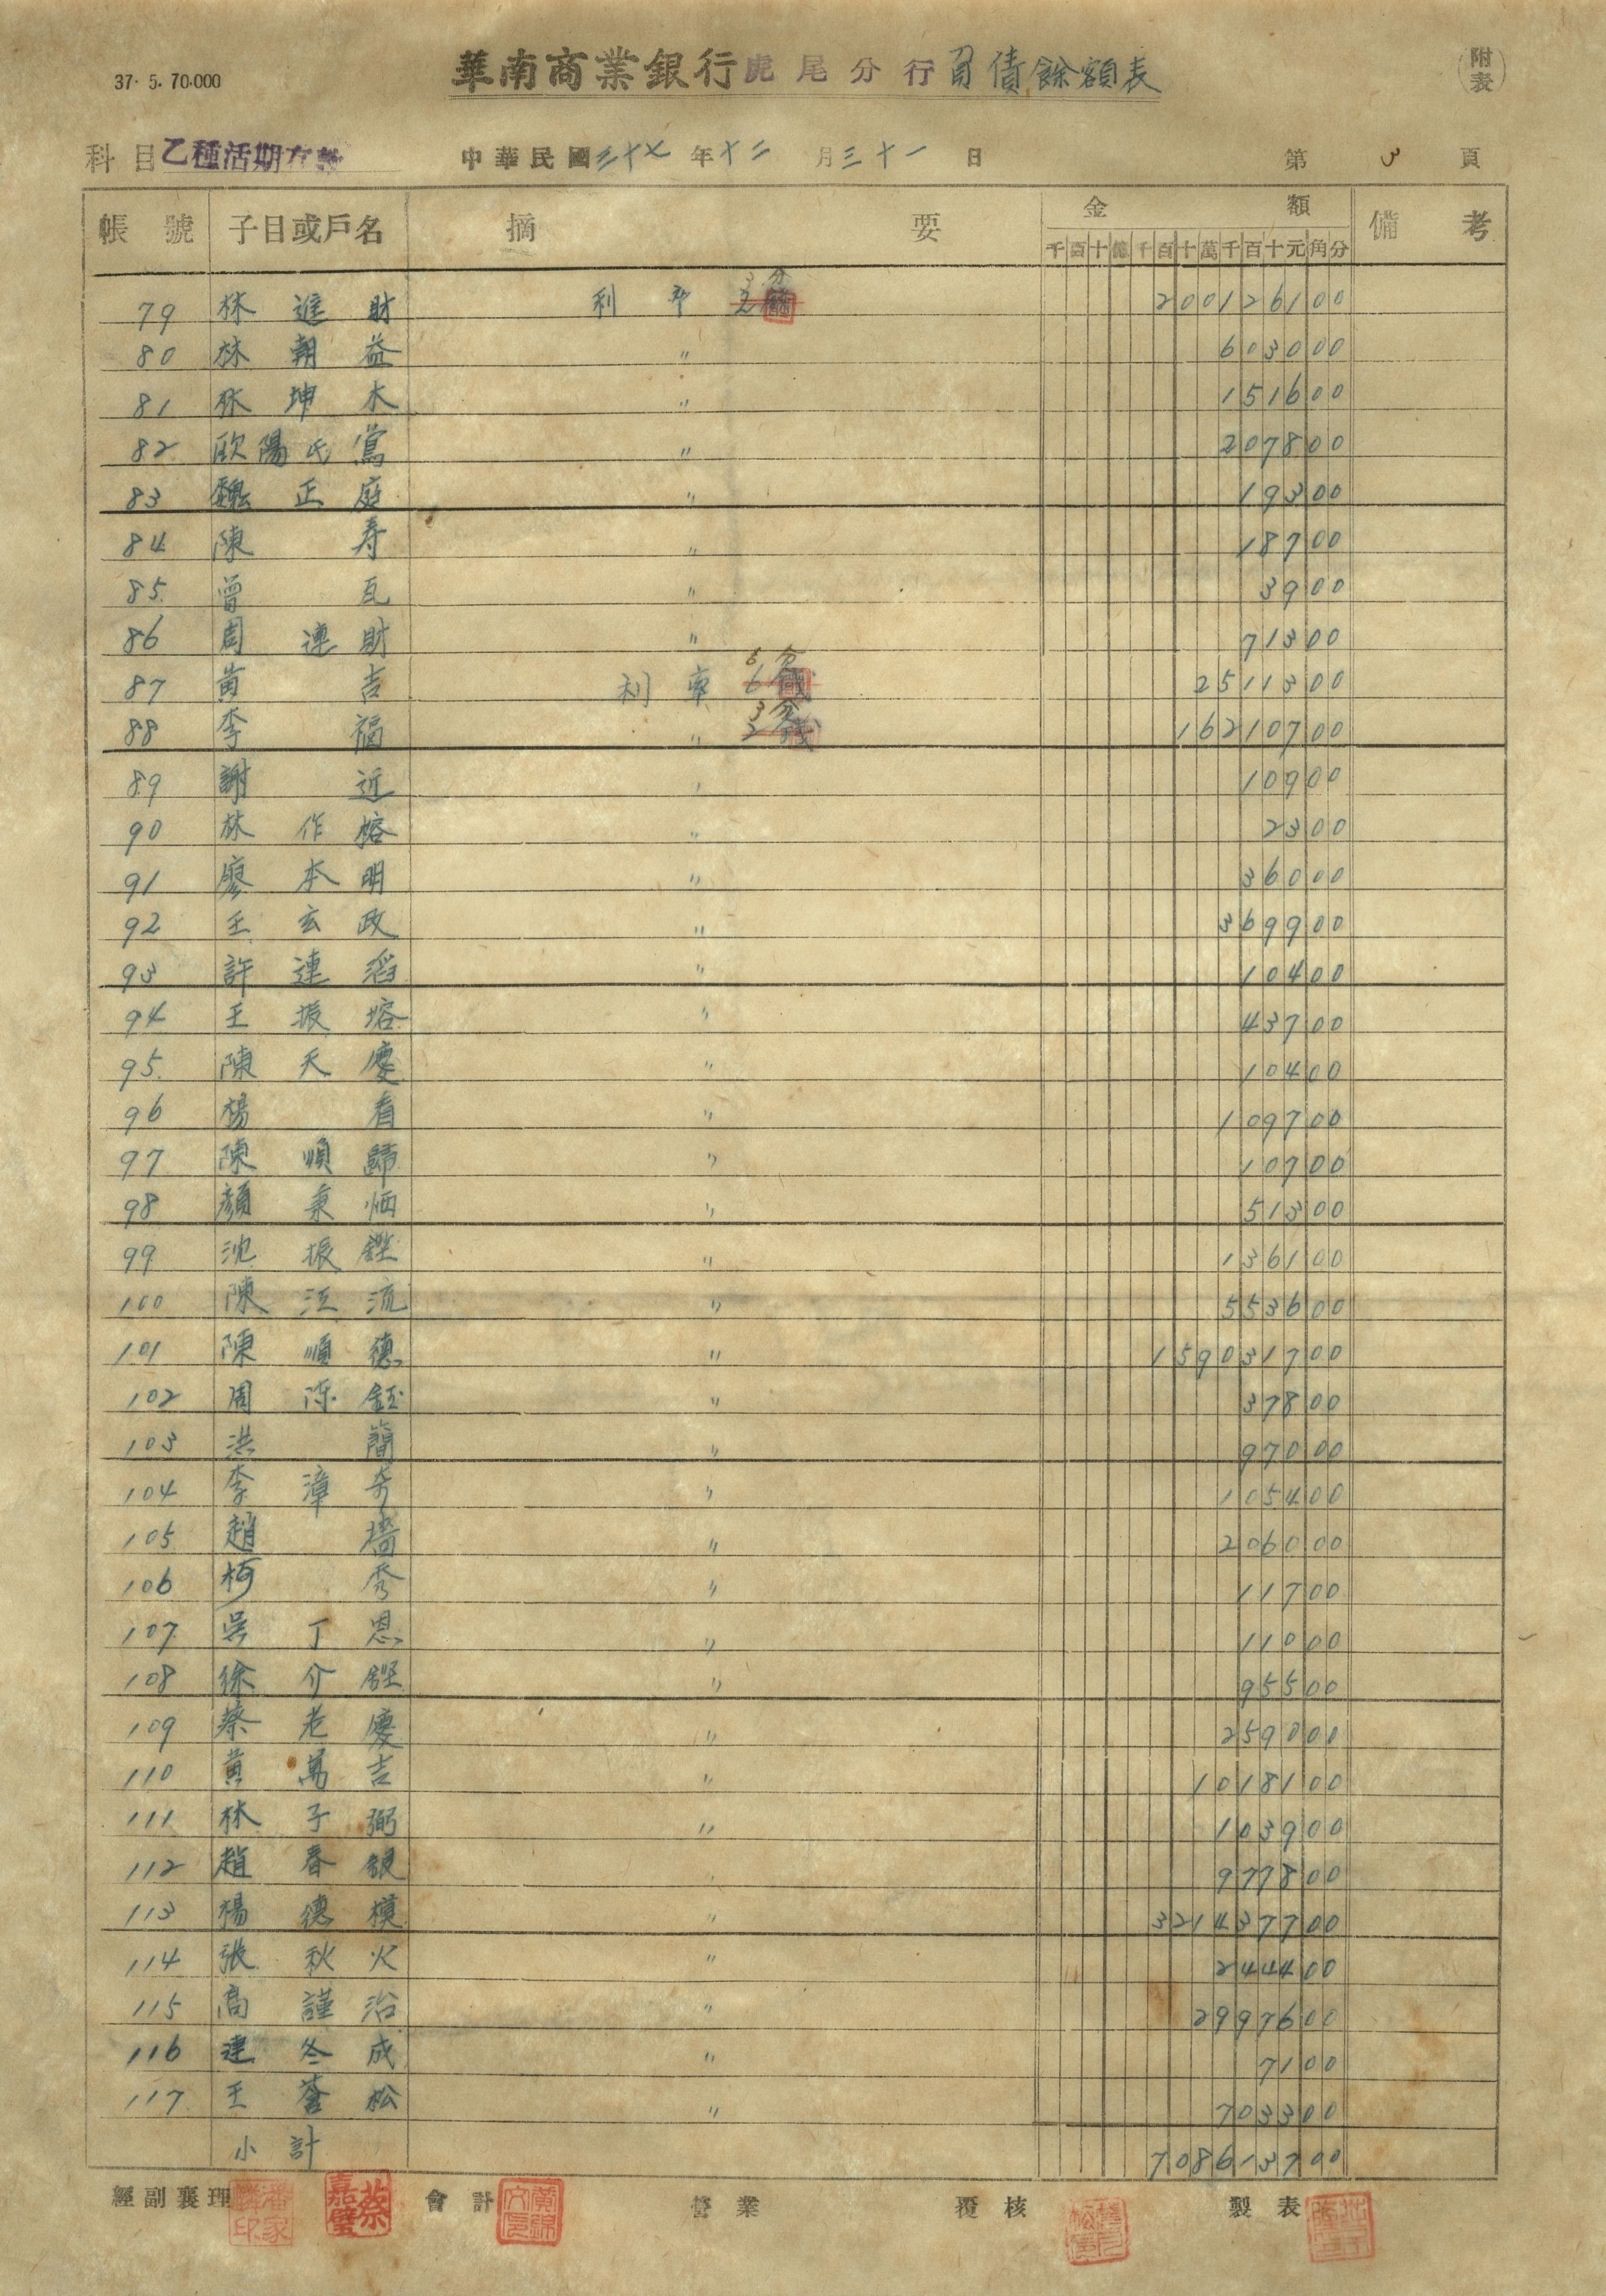 37. 5. 70.000
華南商業銀行虎尾分行負債餘額表
附表
科目 乙種活期存款 中華民國三十七年十二月三十一日 第 3 頁
帳號 子目或戶名 摘要 金額 備考
千百十億千百十萬千百十元角分
79 林進財 利率 3分 200126100
80 林朝益 〃 603000
81 張坤木 〃 151600
82 歐陽氏鴬 〃 207800
83 魏正庭 〃 19300
84 陳寿 〃 18700
85 曾瓦 〃 3900
86 周連財 〃 71300
87 黃吉 利率 6錢 5分 2511300
88 李福 〃 2錢 3分 16210700
89 謝近 〃 10900
90 林作榕 〃 2300
91 廖本明 〃 36000
92 王玄政 〃 369900
93 許連滔 〃 10400
94 王振塔 〃 43700
95 陳天慶 〃 10400
96 楊看 〃 109700
97 陳順歸 〃 10700
98 顏秉炳 〃 51300
99 沈振鏗 〃 136100
100 陳江流 〃 553600
101 陳順德 〃 159031700
102 周陈鈺 〃 37800
103 洪簡 〃 97000
104 李漳奇 〃 105400
105 趙墻 〃 206000
106 柯秀 〃 11700
107 吳丁恩 〃 11000
108 徐介鏗 〃 95500
109 蔡老慶 〃 259000
110 黃萬吉 〃 1018100
111 林子弼 〃 103900
112 趙春銀 〃 977800
113 楊德模 〃 321437700
114 張秋火 〃 244400
115 高謹治 〃 2997600
116 連冬成 〃 7100
117 王蒼松 〃 703300
小計 708613700
經副襄理 蔡嘉璧 會計 營業 覆核 製表